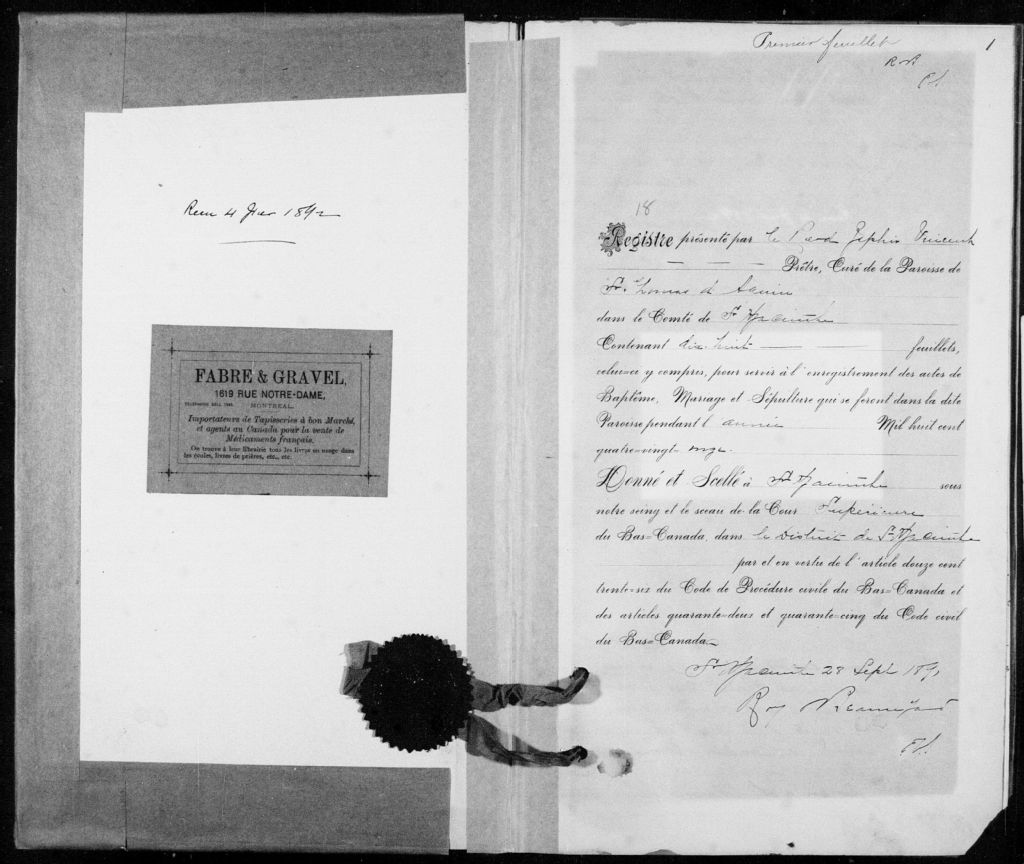 Premier feuillet
1
18
Registre présenté par le Révd Zéphir Vincent
Prêtre, Curé de la Paroisse de
St. Thomas d'Aquin
dans le Comté de St Hyacinthe
Contenant dix-huit feuillets,
celui-ci y compris, pour servir à l'enregistrement des actes de
Baptême, Mariage et Sépulture qui se feront dans la dite
Paroisse pendant l'année Mil huit cent
quatre-vingt- onze.
Donné et Scellé à St Hyacinthe sous
notre seing et le sceau de la Cour Supérieure
du Bas-Canada, dans le District de St Hyacinthe
par et en vertu de l'article douze cent
trente-six du Code de Procédure civile du Bas-Canada et
des articles quarante-deux et quarante-cinq du Code civil
du Bas-Canada.
St Hyacinthe 28 Sept 1891
Roy Beauregard
4 1892
FABRE & GRAVEL,
1619 RUE NOTRE-DAME,
MONTREAL.
Importateurs de Tapisseries à bon Marché,
et agents au Canada pour la vente de
Médicaments français.
On trouve à leur librairie tous les livres en usage dans
les écoles, livres de prières, etc., etc.